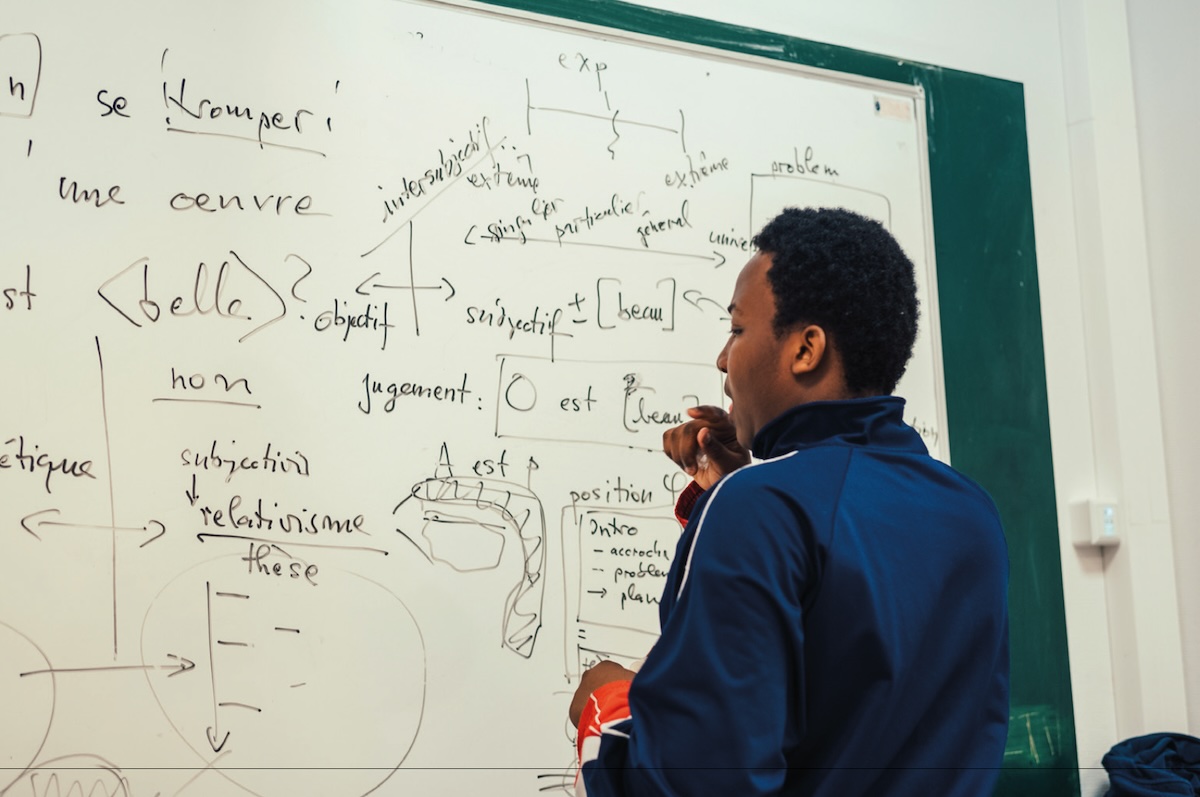 n
se tromper
exp
une oeuvre
intersubjectif
extême
extrême
problem
singulier particulier général univer
st belle ?
objectif
subjectif ± [beau]
non
jugement: O est [beau]
étique
subjectivi
A est p
relativisme
position
thèse
Intro
- accroche
- problem
→ plan